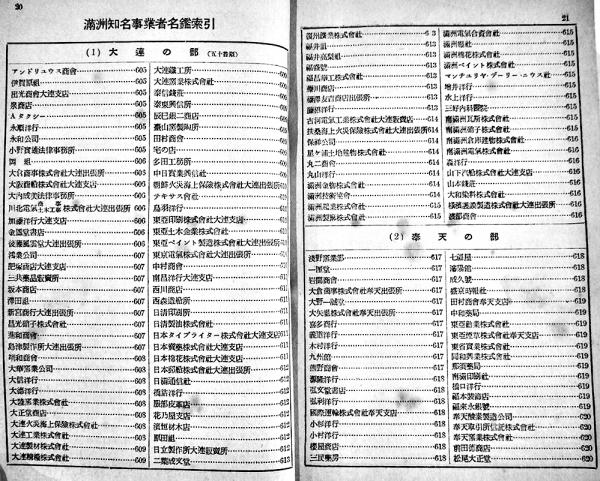 20
滿洲知名事業者名鑑索引
(1) 大連の部 (五十音順)
アンドリユウス商會 605
伊賀原組 605
出光商會大連支店 605
泉商店 605
Aタクシー 605
永順洋行 605
永和公司 605
小野寶通法律事務所 605
岡組 606
大倉商事株式會社大連出張所 606
大阪商船株式會社大連支店 606
大內成美法律事務所 606
加藤洋行大連支店 606
金露堂書店 606
後藤風雲堂大連出張所 606
鴻業公司 607
肥塚商店大連支店 607
三共藥品販賣所 607
坂本商店 607
澤田組 607
新宮商行大連出張所 607
昌光硝子株式會社 607
進和商會 608
島津製作所大連出張所 608
明和商會 608
大華窯業公司 608
大信洋行 608
大滿洋行 608
大陸窯業株式會社 608
大正堂商店 608
大連火災海上保險株式會社 608
大連工業株式會社 608
大連製材株式會社 609
大連機械株式會社 609
大連鐵工所
大連窯業株式會社
泰信錢莊
泰東興信所
辰巳組二商店
臺山窯製陶所
田村商會
宅の店
多田工務所
中日實業興信所
朝鮮火災海上保險株式會社大連出張所
テキサス會社
鳥羽洋行
東亞印刷株式會社大連支店
東亞土木企業株式會社
東亞ペイント製造株式會社大連出張所
東京電氣株式會社大連出張所
中村商會
南昌洋行大連支店
西川商店
西森造船所
日清印刷所
日清製油株式會社
日本タイプライター株式會社大連支店
日本賣藥株式會社大連支店
日本棉花株式會社大連支店
日本郵船株式會社大連出張所
日滿通信社
橋詰洋行
服部皮革店
花乃屋支店
濱恒材木店
原田組
日立製作所大連販賣所
二葉成文堂
21
復州鑛業株式會社 613
福井組 613
福井高梨組 613
福盛號 613
福昌華工株式會社 613
藤川商店 613
藤澤友吉商店出張所 613
藤原洋行 613
古河電氣工業株式會社大連販賣店 614
扶桑海上火災保險株式會社大連出張所 614
保祥公司 614
星ヶ浦土地建物株式會社 614
丸二商會 614
丸山洋行 614
滿洲金物株式會社 614
滿洲技術協會 614
滿洲起業株式會社 615
滿洲製麻株式會社 615
滿洲電氣合資會社 615
滿洲棉花株式會社 615
滿洲ペイント株式會社 615
マンチユリヤ・デーリー・ニウス社 615
增井洋行 615
水上洋行 615
三好內科醫院 615
南滿洲瓦斯株式會社 615
南滿洲硝子株式會社 616
南滿洲倉庫建物株式會社 616
南滿洲電氣株式會社 616
森洋行 616
山下汽船株式會社大連支店 616
山本錢莊 616
大和染料株式會社 616
磯部商會 616
(2) 奉天の部
淺野窯業部 617
一匡堂 617
岩間商會 617
大倉商事株式會社奉天出張所 617
大野一誠堂 617
大矢組株式會社奉天出張所 617
喜多商行 617
義道洋行 617
木村洋行 617
九州館 617
熊野商會 617
弘文堂書店 618
弘利洋行 618
國際運輸株式會社奉天支店 618
小杉洋行 618
小村洋行 618
櫻屋商店 618
三昆藥房 618
七福屋 618
瀋陽館 618
成久號 618
盛京時報社 618
田村商會奉天支店 619
中和藥局 619
東亞勸業株式會社 619
東亞煙草株式會社奉天支店 619
東省實業株式會社 619
同和興業株式會社 619
那須藥局 619
南滿印刷社 619
橋口洋行 619
福本裝飾店 619
福泉永銀號 619
奉天酸素製造公司 620
奉天取引所信託株式會社 620
奉天窯業株式會社 620
前田池商店 620
松尾大正堂 620